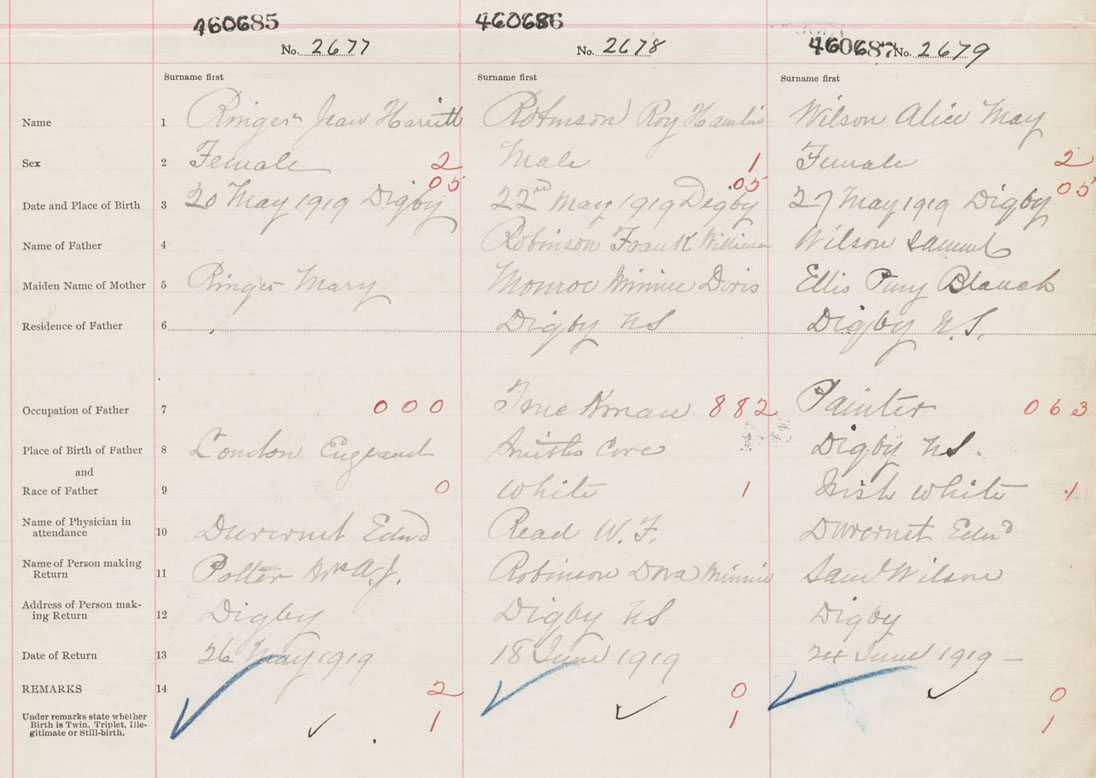 460685 460686 460687
No. 2677 No. 2678 No. 2679
Surname first Surname first Surname first
Name 1 Ringer Jean Harriett Robinson Roy Hamlin Wilson Alice May
Sex 2 Female 2 Male 1 Female 2
05 05 05
Date and Place of Birth 3 20 May 1919 Digby 22nd May 1919 Digby 27 May 1919 Digby
Name of Father 4 Robinson Frank William Wilson Samuel
Maiden Name of Mother 5 Ringer Mary Monroe Minnie Doris Ellis Blanch
Residence of Father 6 Digby NS Digby N.S.
Occupation of Father 7 000 882 Painter 063
Place of Birth of Father 8 London England Smiths Cove Digby NS.
and
Race of Father 9 0 White 1 Irish White 1
Name of Physician in
attendance 10 Read W. F.
Name of Person making
Return 11 Potter Mrs A. J. Robinson Dora Minnie Saml Wilson
Address of Person mak-
ing Return 12 Digby Digby NS Digby
Date of Return 13 26 May 1919 18 June 1919 24 June 1919 –
REMARKS 14 2 0 0
Under remarks state whether
Birth is Twin, Triplet, Ille-
gitimate or Still-birth. 1 1 1